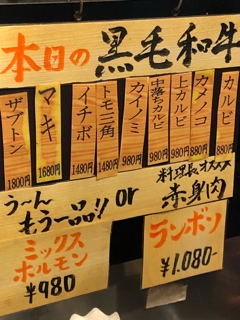 本日の黒毛和牛
カルビ 880円
カメノコ 880円
上カルビ 980円
中落ちカルビ 980円
カイノミ 980円
トモ三角 1480円
イチボ 1480円
マキ 1680円
ザブトン 1800円
う〜ん もう一品!!
or
料理長オススメ 赤身肉
ミックスホルモン
¥980
ランボソ
¥1.080-